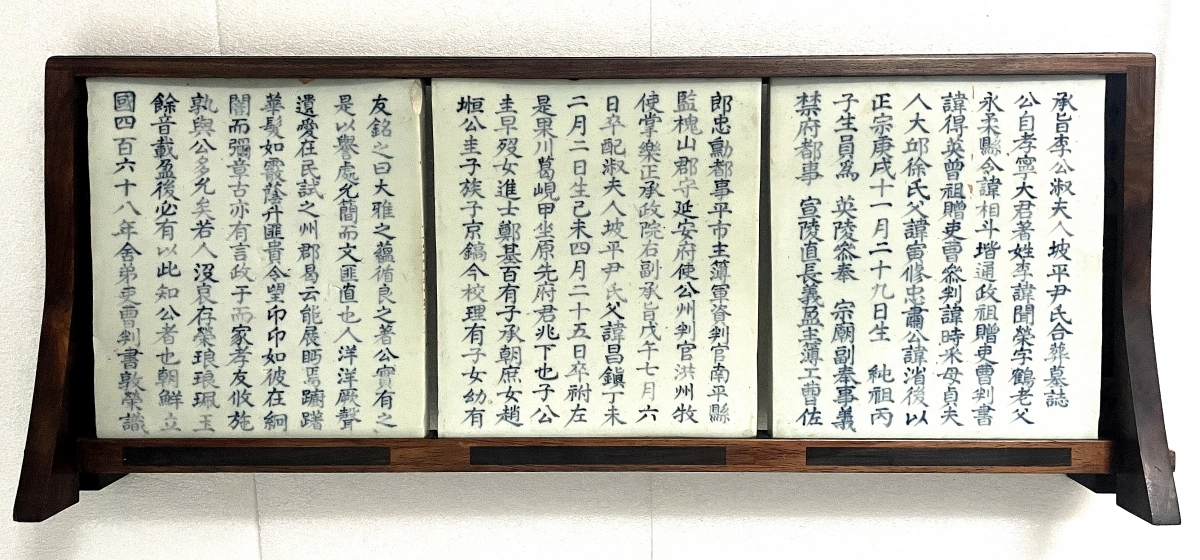 承旨李公淑夫人坡平尹氏合葬墓誌
公自孝寧大君著姓李諱閏榮字鶴老父
永柔縣令諱相斗堦通政祖贈吏曹判書
諱得英曾祖贈吏曹叅判諱時釆母貞夫
人大邱徐氏父諱寅修忠肅公諱渻後以
正宗庚戌十一月二十九日生 純祖丙
子生員爲 英陵叅奉 宗廟副奉事義
禁府都事 宣陵直長義盈主簿工曹佐
郎忠勳都事平市主簿軍資判官南平縣
監槐山郡守延安府使公州判官洪州牧
使掌樂正承政院右副承旨戊午七月六
日卒配淑夫人坡平尹氏父諱昌鎭丁未
二月二日生己未四月二十五日卒祔左
是果川葛峴甲坐原先府君兆下也子公
圭早歿女進士鄭基百有子承朝庶女趙
恒公圭子族子京鎬今校理有子女幼有
友銘之曰大雅之蘊循良之著公實有之
是以譽處允簡而文匪直也人洋洋厥聲
遺愛在民試之州郡曷云能展眄焉躕躇
華髮如霰蔭升匪貴令望卬卬如彼在絅
闇而彌章古亦有言政于而家孝友攸施
孰與公多允矣若人沒哀存榮琅琅珮玉
餘音載盈後必有以此知公者也朝鮮立
國四百六十八年舍弟吏曹判書敦榮識